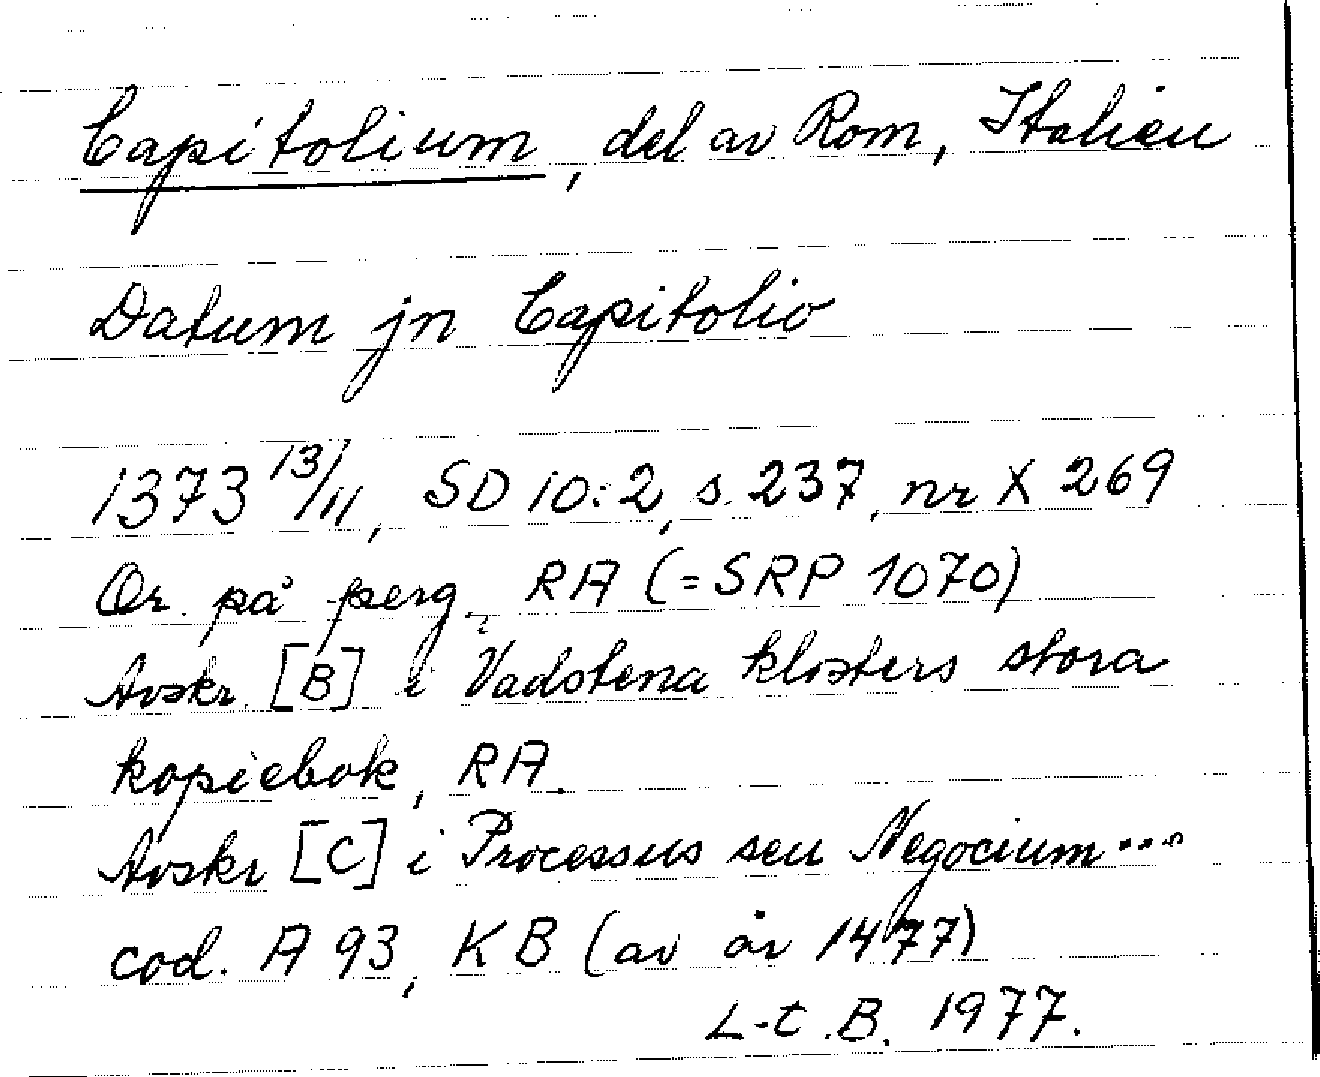 Capitolium, del av Rom, Italien
Datum jn Capitolio
1373 13/11, SD 10:2, s. 237, nr X 269
Or. på perg., RA (=SRP 1070)
Avskr. [B] i Vadstena klosters stora
kopiebok, RA.
Avskr [C] i Processus seu Negocium...
cod. A 93, KB (av år 1477)
L-t.B. 1977.